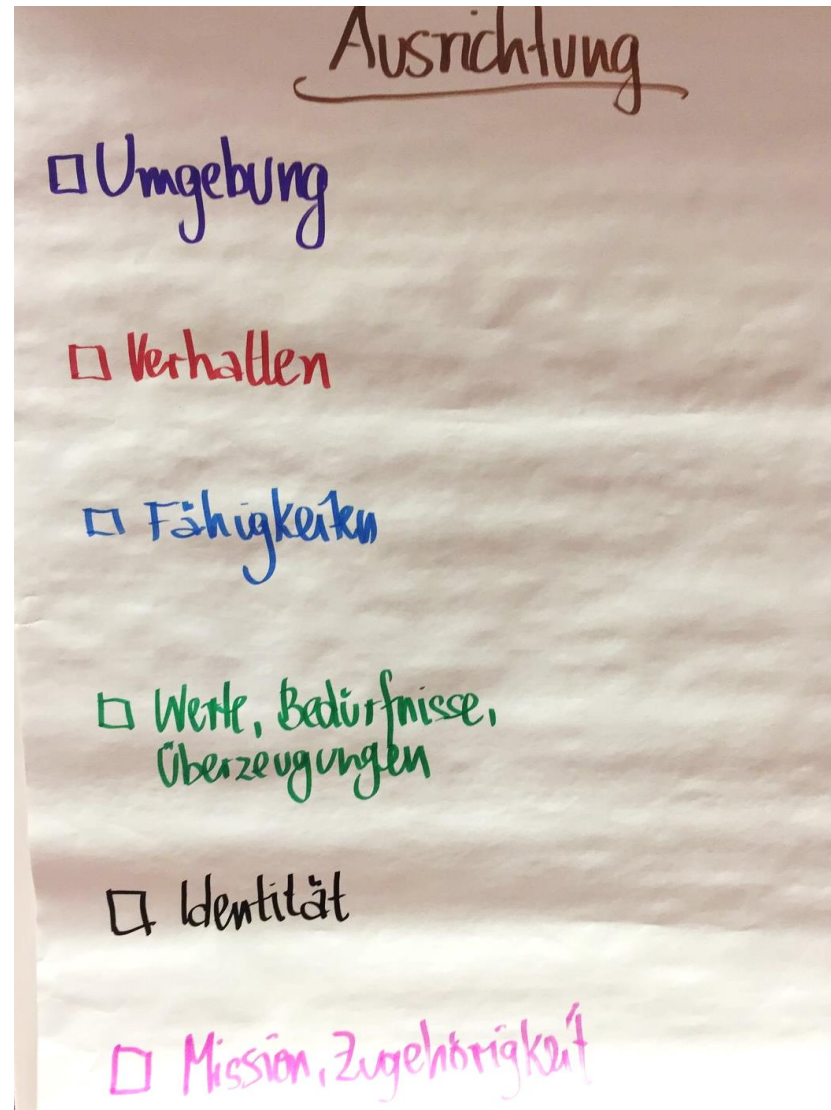 Ausrichtung
☐ Umgebung
☐ Verhalten
☐ Fähigkeiten
☐ Werte, Bedürfnisse,
Überzeugungen
☐ Identität
☐ Mission, Zugehörigkeit